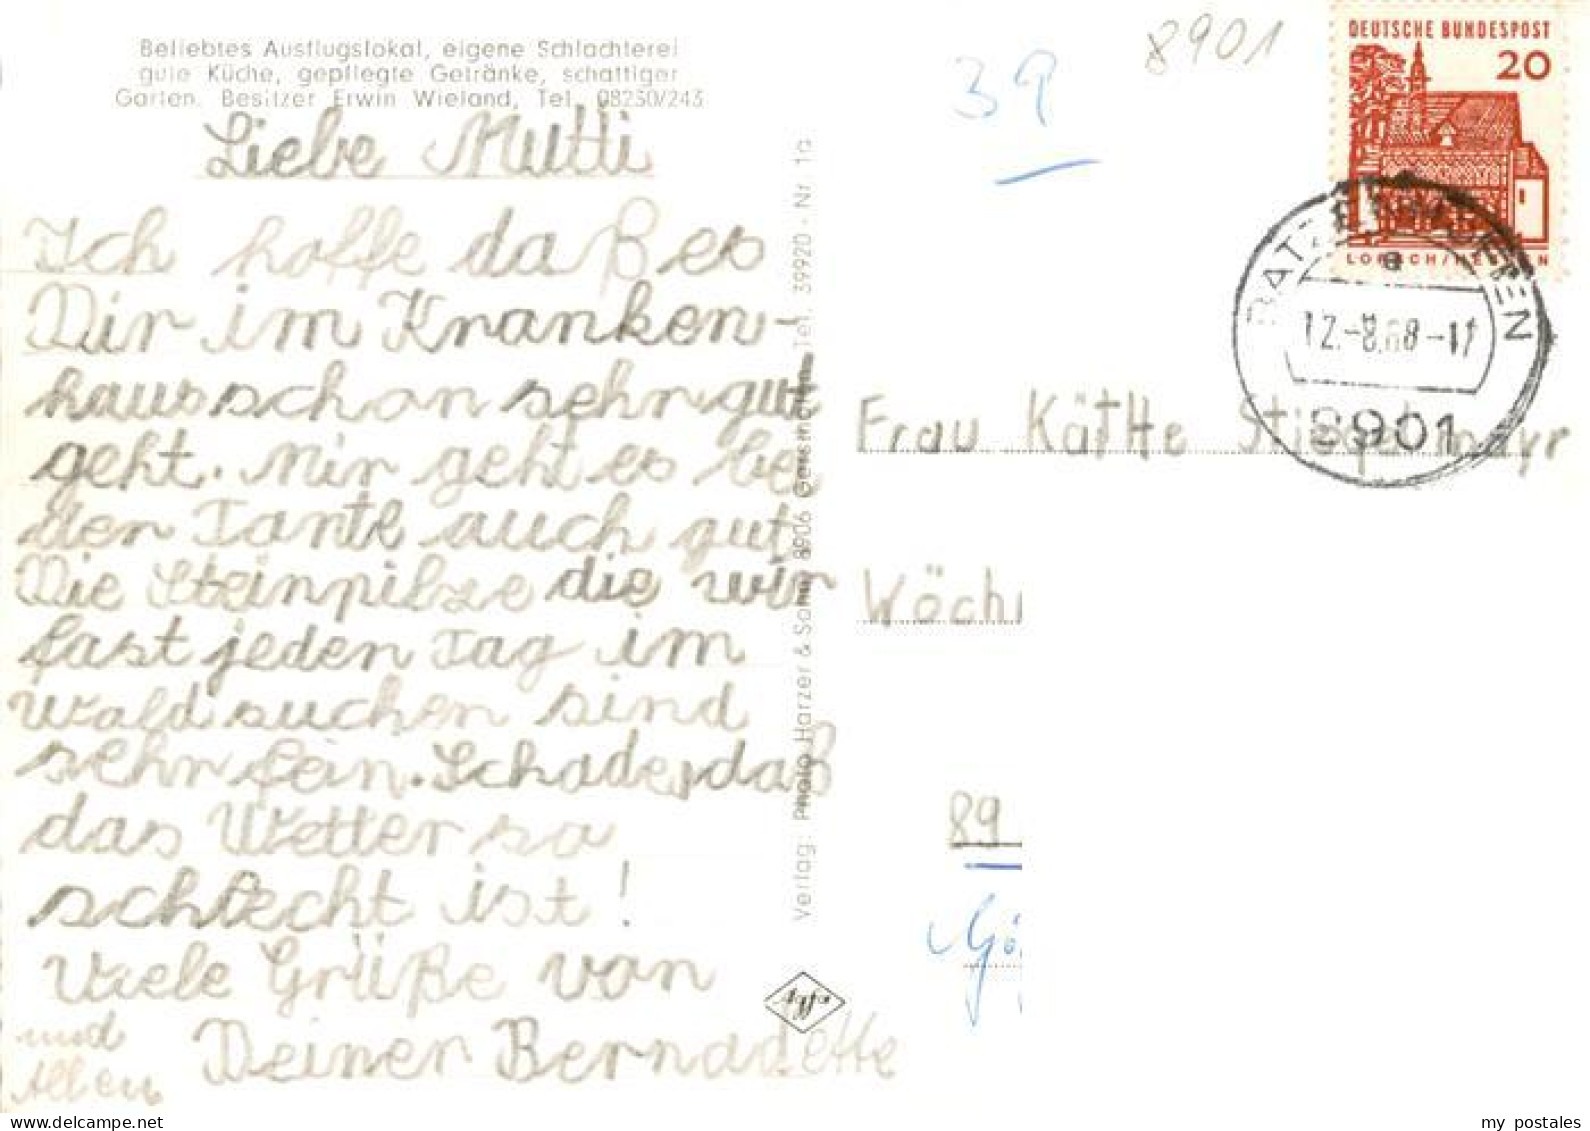 Beliebtes Ausflugslokal, eigene Schlachterei
gute Küche, gepflegte Getränke, schattiger
Garten. Besitzer Erwin Wieland, Tel. 08230/243
Liebe Mutti
Ich hoffe daß es
Dir im Kranken-
haus schon sehr gut
geht. Mir geht es bei
der Tante auch gut.
Die Steinpilze die wir
fast jeden Tag im
Wald suchen sind
sehr fein. Schade, daß
das Wetter so
schlecht ist!
Viele Grüße von
Deiner Bernadette
und
Allen
Verlag: Photo Harzer & Sohn, 8906 Gersthofen, Tel. 39920 - Nr. 1a
Agfa
39
8901
DEUTSCHE BUNDESPOST
20
LORSCH/HESSEN
BATZENHOFEN
a
12.-8.68-17
8901
Frau Käthe
Wöchn
89
Gö
my postales